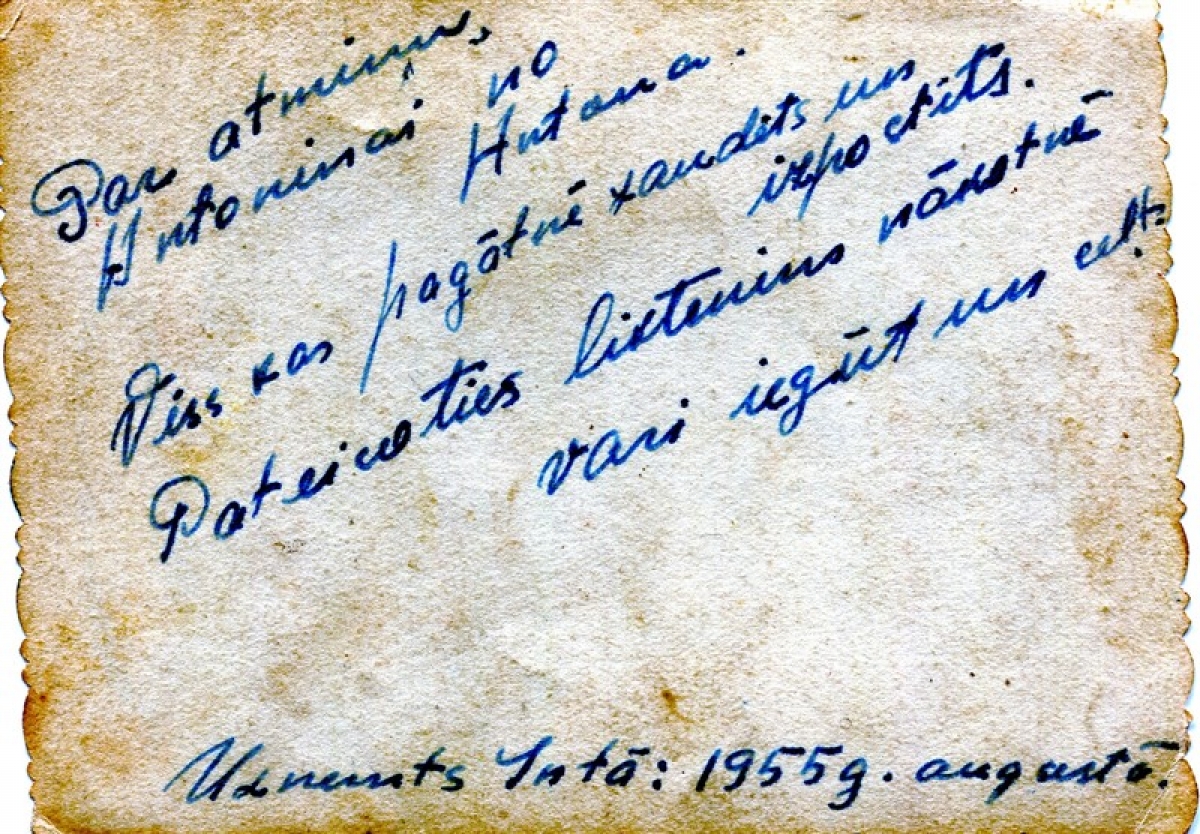 Par atmiņu,
Antoninai no
Antona.
Viss kas pagātnē zaudēts un
izpostīts.
Pateicoties liktenim nākotnē
vari iegūt un celt.
Uzņemts Intā: 1955g. augustā.